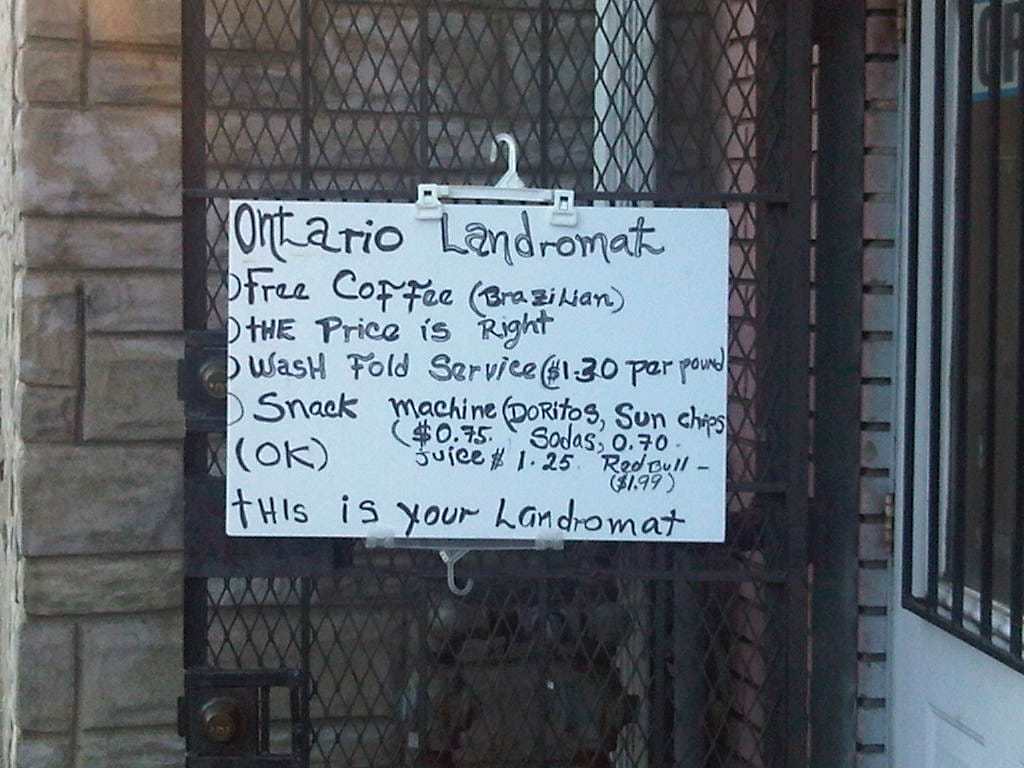 Ontario Landromat
)Free Coffee (Brazilian)
)tHE Price is Right
)WasH Fold Service ($1.30 per pound
)Snack machine (DoRitos, Sun chips
($0.75. Sodas, 0.70.
(OK) Juice $ 1.25. Red Bull -
($1.99)
tHIs is your Landromat